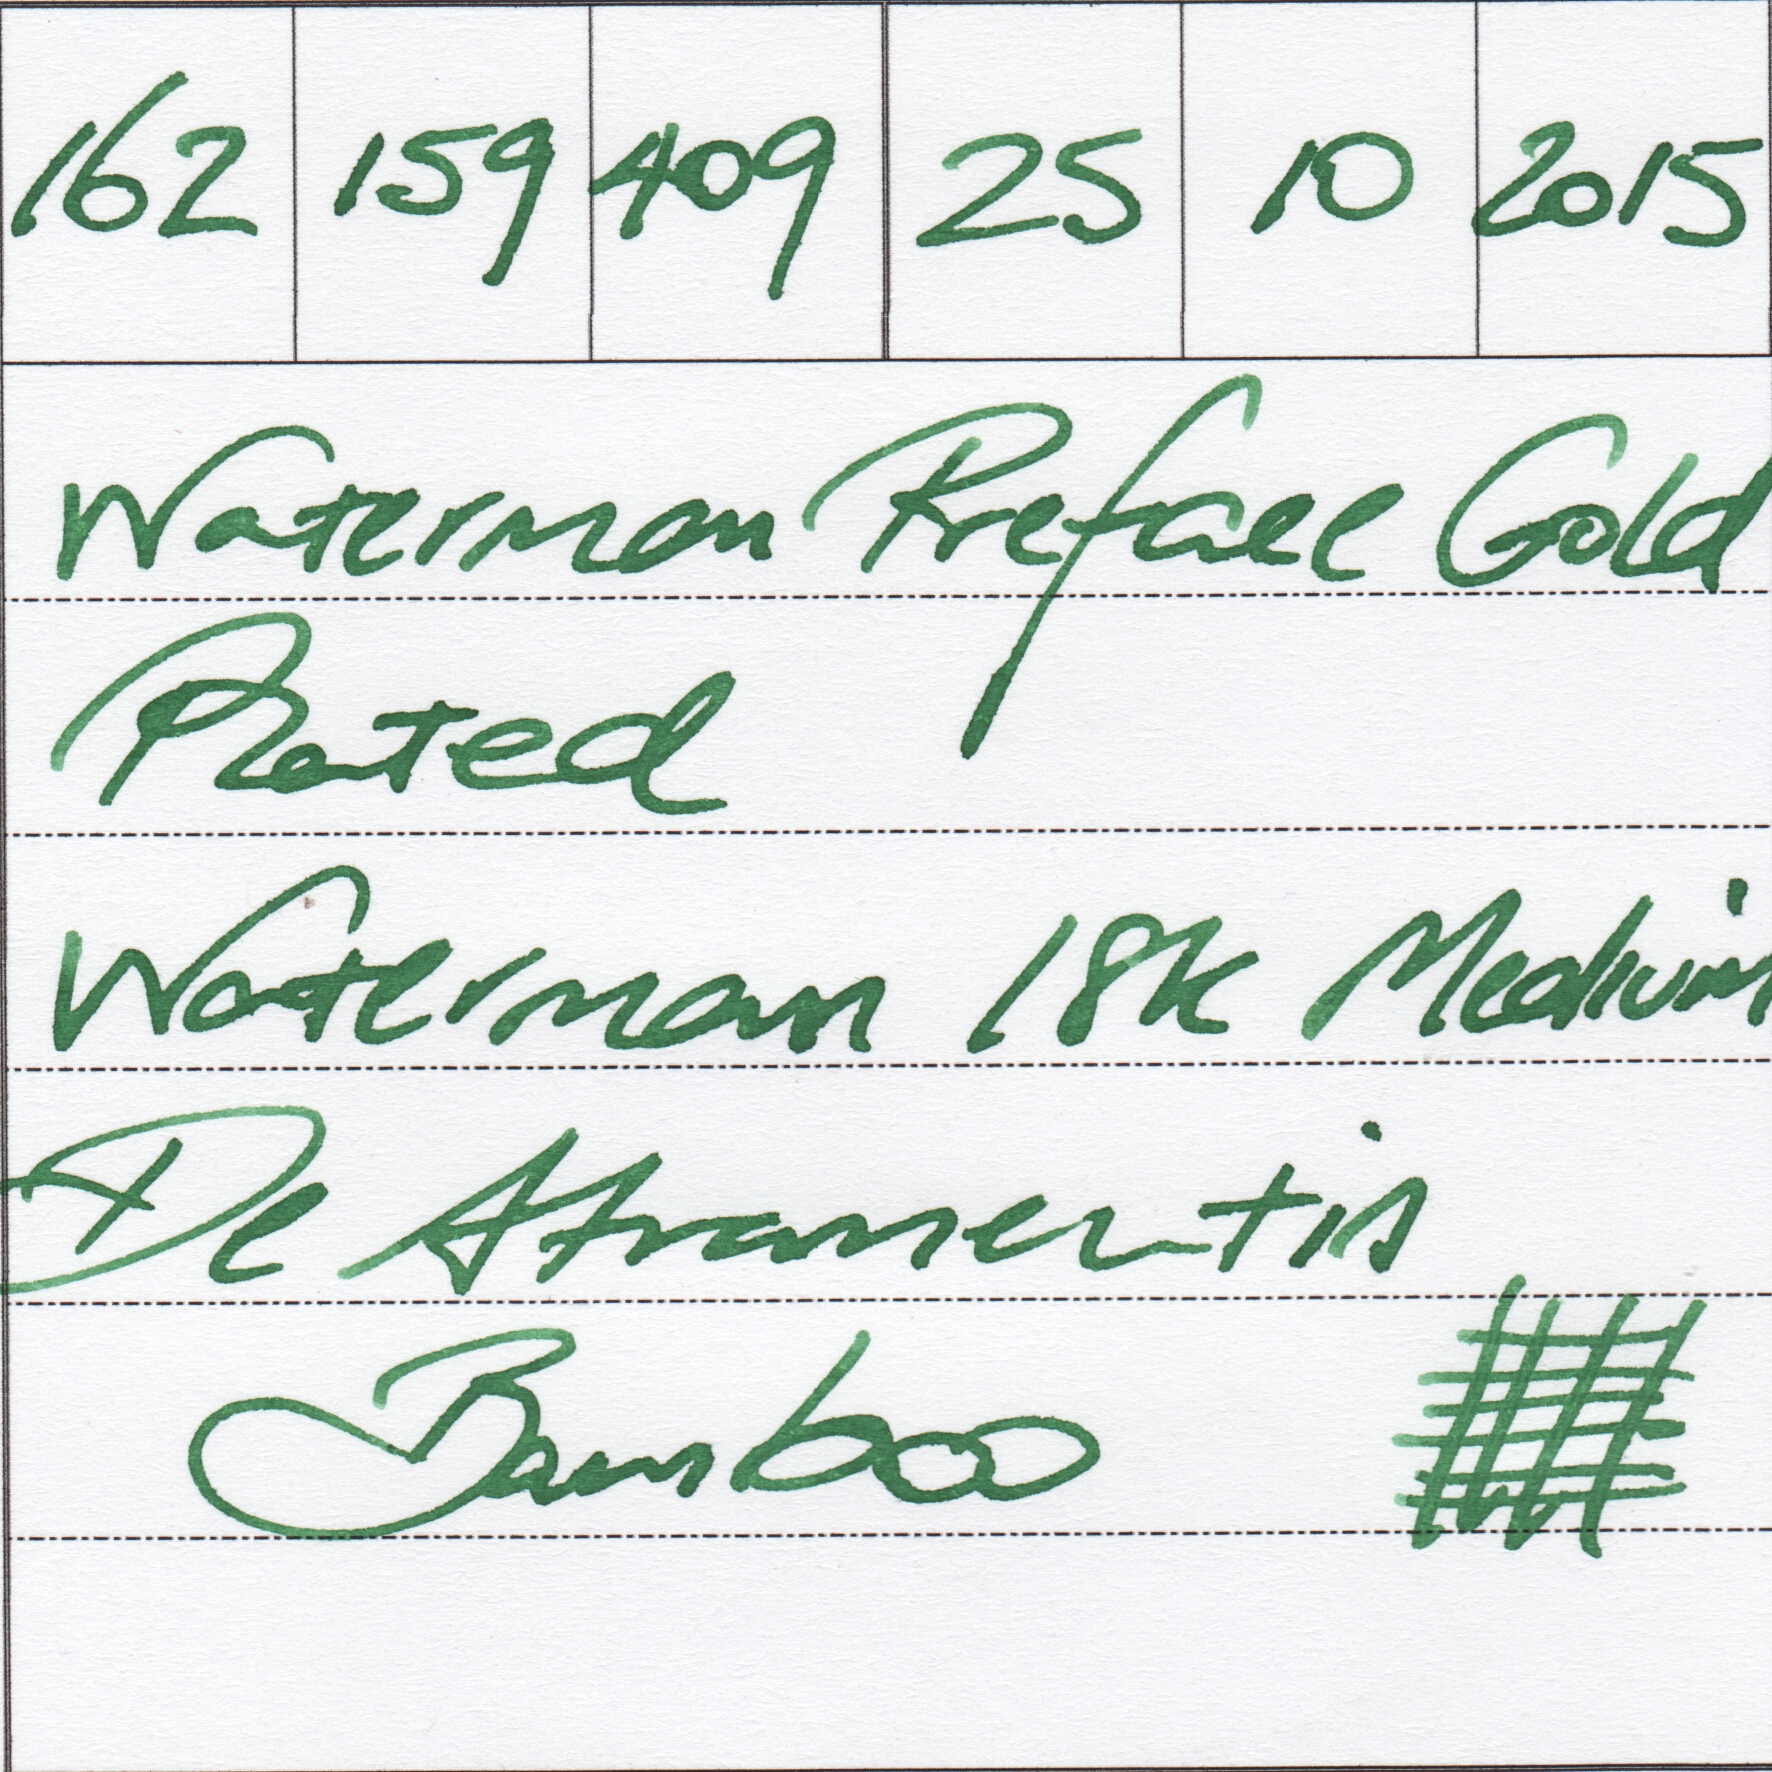 162 159 409 25 10 2015
Waterman Preface Gold
Plated
Waterman 18k Medium
De Atramentis
Bamboo